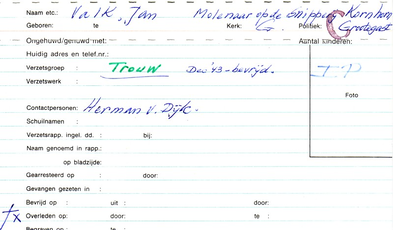 Naam etc.: Valk, Jan Molenaar op de Snipperij Kornhorn
Geboren: te Kerk: G. Politiek: Grootegast
Ongehuwd/gehuwd met: Aantal kinderen:
Huidig adres en telef.nr.:
Verzetsgroep : Trouw Dec '43 - bevrijd.
Verzetswerk :
Foto
Contactpersonen: Herman v. Dijk.
Schuilnaam :
Verzetsrapp. ingel. dd. : bij:
Naam genoemd in rapp.:
op bladzijde:
Gearresteerd op : door:
Gevangen gezeten in :
Bevrijd op : uit : door:
Overleden op: door: te :
Begraven op : te :